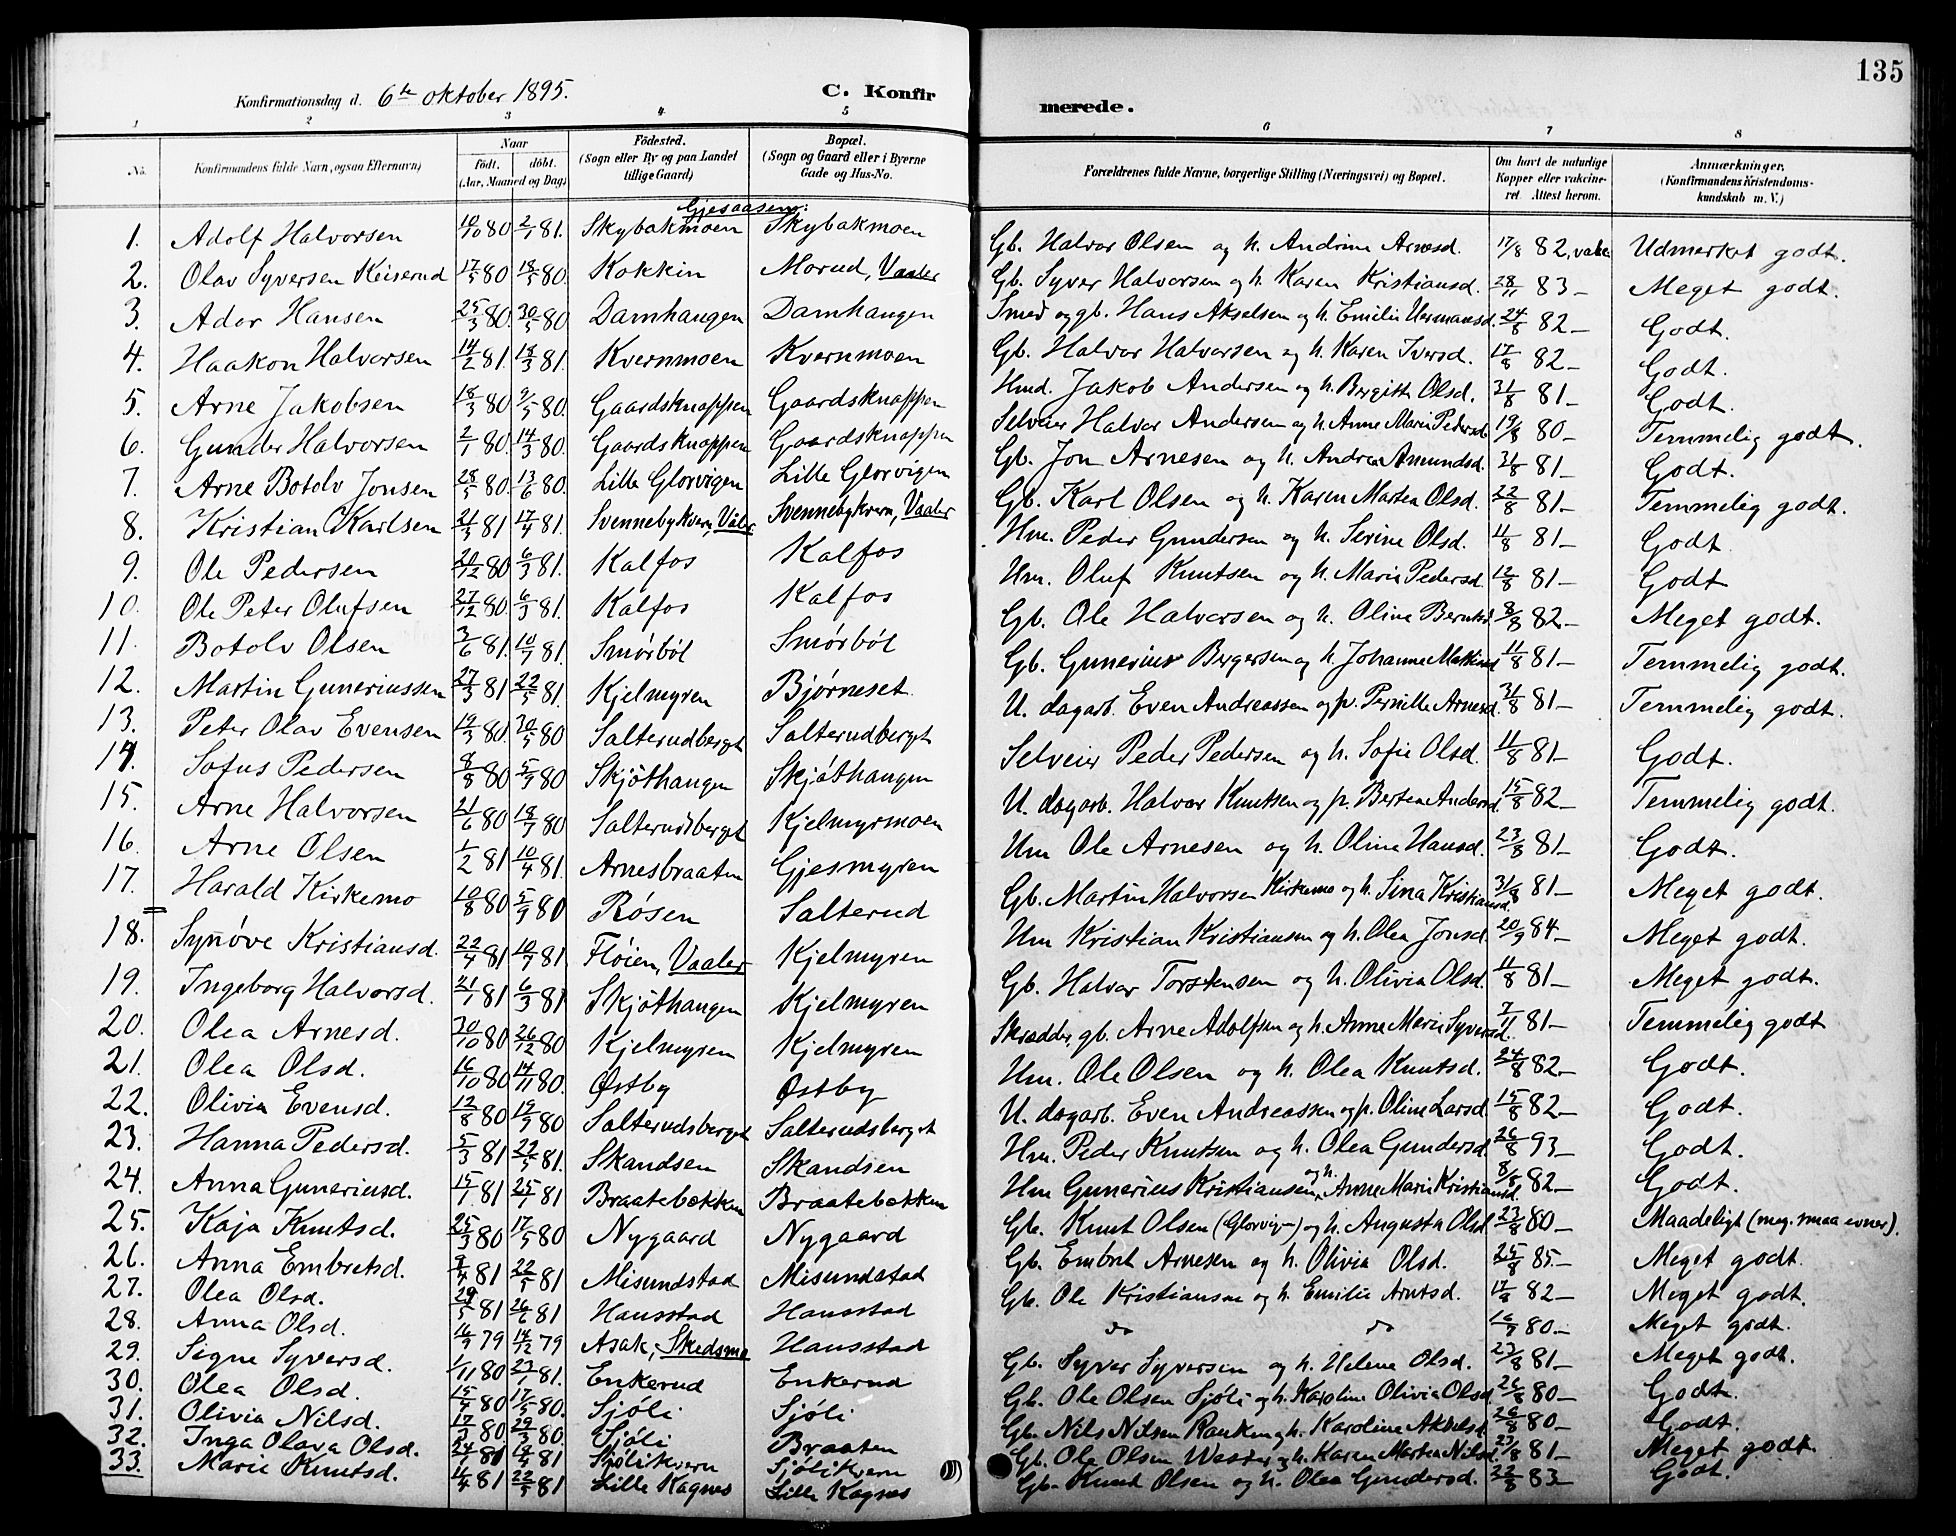 135
Konfirmationsdag d. 6te oktober 1895. C. Konfirmerede.
1 2 3 4 5 6 7 8
No. Konfirmandens fulde Navn, ogsaa Efternavn) Naar födt. döbt. (Aar, Maaned og Dag) Födested. (Sogn eller By og paa Landet tillige Gaard) Bopæl. (Sogn og Gaard eller i Byerne Gade og Hus-No. Forældrenes fulde Navne, borgerlige Stilling (Næringsvei) og Bopæl. Om havt de naturlige Kopper eller vakcineret Attest herom. Anmærkninger. (Konfirmandens Kristendomskundskab m. V.)
Gjesaasen:
1. Adolf Halvorsen 10/10 80 2/1 81. Skybakmoen Skybakmoen Gb. Halvor Olsen og h. Andrine Arnesd. 17/8 82, vakc Udmerket godt.
2. Olav Syversen Keiserud 17/5 80 18/5 80. Kokkin Morud, Vaaler Gb. Syver Halvorsen og h. Karen Kristiansd. 28/11 83 – Meget godt.
3. Ador Hansen 25/3 80. 30/5 80 Damhaugen Damhaugen Smed og gb. Hans Akselsen og h. Emilie Hermansd. 24/8 82 – Godt.
4. Haakon Halvorsen 14/2 81. 18/3 81. Kvernmoen Kvernmoen Gb. Halvor Halvorsen og h. Karen Iversd. 17/8 82 – Godt.
5. Arne Jakobsen 18/3 80 9/5 80. Gaardsknappen Gaardsknappen Hmd. Jakob Andersen og h. Bergitte Olsd. 31/8 81 – Godt.
6. Gunder Halvorsen 2/1 80. 14/3 80. Gaardsknappen Gaardsknappen Selveier Halvor Andersen og h. Anne Marie Pedersd. 19/8 80 – Temmelig godt.
7. Arne Botolv Jonsen 28/5 80. 13/6 80. Lille Glorvigen Lille Glorvigen Gb. Jon Arnesen og h. Andrea Amundsd. 31/8 81 – Godt.
8. Kristian Karlsen 21/3 81 17/4 81. Svennebykvern, Våler Svennebykvern, Vaaler Gb. Karl Olsen og h. Karen Martea Olsd. 22/8 81 – Temmelig godt.
9. Ole Pedersen 20/12 80 6/3 81. Kalfos Kalfos Hm. Peder Gundersen og h. Serine Olsd. 11/8 81 – Godt
10. Ole Peter Olufsen 27/12 80 6/3 81. Kalfos Kalfos Hm. Oluf Knutsen og h. Marie Pedersd. 12/8 81 – Godt
11. Botolv Olsen 3/6 81. 10/7 81. Smörböl Smörböl Gb. Ole Halvorsen og h. Oline Berntsd. 8/8 82 – Meget godt.
12. Martin Guneriussen 27/3 81 22/5 81. Kjelmyren Bjørneset. Gb. Gunerius Bergersen og h. Johanne 11/8 81 – Temmelig godt.
13. Peter Olav Evensen 19/3 80. 30/5 80 Salterudberget Salterudberget U. dagarb. Even Andreassen og p. Pernille Arnesd. 31/8 81 – Temmelig godt.
14. Sofus Pedersen 8/8 80 5/9 80 Skjöthaugen Skjöthaugen Selveier Peder Pedersen og h. Sofie Olsd. 11/8 81 – Godt.
15. Arne Halvorsen 21/6 80 18/7 80 Salterudsberget Kjelmyrmoen U. dagarb. Halvor Knutsen og p. Bertea Andersd. 15/8 82 – Temmelig godt.
16. Arne Olsen 1/2 81 10/4 81. Arnesbraaten Gjesmyren Hm Ole Arnesen og h. Oline Hansd. 23/8 81 – Godt.
17. Harald Kirkemo 10/8 80 5/9 80 Rösen Salterud Gb. Martin Halvorsen Kirkemo og h. Sina Kristiansd. 31/8 81 – Meget godt.
18. Synöve Kristiansd. 22/4 81 10/7 81. Flöien, Vaaler Kjelmyren Hm Kristian Kristiansen og h. Olea Jonsd. 20/9 84 – Meget godt.
19. Ingeborg Halvorsd. 21/1 81 6/3 81 Skjöthaugen Kjelmyren Gb. Halvor Torstensen og h. Olivia Olsd. 11/8 81 – Meget godt.
20. Olea Arnesd. 30/10 80 26/12 80 Kjelmyren Kjelmyren Skrædder, gb. Arne Adolfsen og h. Anne Marie Syversd. 7/11 81 – Temmelig godt
21. Olea Olsd. 16/10 80 14/11 80. Østby Østby Hm. Ole Olsen og h. Olea Knutsd. 24/8 82 – Godt.
22. Olivia Evensd. 12/8 80 19/9 80 Salterudsberget Salterudsberget U. dagarb. Even Andreassen og p. Oline Larsd. 15/8 82 – Godt.
23. Hanna Pedersd. 5/3 81 22/5 81. Skandsen Skandsen Hm. Peder Knutsen og h. Olea Gundersd. 26/8 93 – Godt.
24. Anna Guneriusd. 15/1 81 25/1 81 Braatebækken Braatebækken Hm Gunerius Kristiansen og h. Anne Marie Kristiansd. 8/8 82 – Godt.
25. Kaja Knutsd. 25/3 80 17/5 80 Nygaard Nygaard Gb. Knut Olsen (Glorvig–) og h. Augusta Olsd 23/8 80 – Maadeligt (meg. smaa evner).
26. Anna Embretsd. 8/4 81 22/5 81 Misundstad Misundstad Gb. Embret Arnesen og h. Olivia Olsd. 25/8 85 – Meget godt.
27. Olea Olsd. 29/5 81 26/6 81 Hansstad Hansstad Gb. Ole Kristiansen og h. Emilie Arntsd. 17/8 82 – Meget godt.
28. Anna Olsd. 16/9 79 14/12 79 Asak, Skedsmo Hansstad do do 16/9 80 – Meget godt.
29. Signe Syversd. 1/11 80 23/1 81. Enkerud Enkerud Gb. Syver Syversen og h. Helene Olsd. 23/8 81 – Meget godt.
30. Olea Olsd. 15/4 80 17/5 80. Sjöli Sjöli Gb. Ole Olsen Sjöli og h. Karoline Olivia Olsd 26/8 80 – Godt.
31. Olivia Nilsd. 17/3 80 29/3 80 Sjöli Braaten Gb. Nils Nilsen Ranken og h. Karoline Akselsd 26/8 80 – Godt.
32. Inga Olava Olsd. 24/1 81 18/4 81 Sjölikvern Sjölikvern Gb. Ole Olsen og h. Karen Martea Nilsd. 23/8 81 – Meget godt.
33. Marie Knutsd. 4/4 81 22/5 81 Lille Kagnes Lille Kagnes Gb. Knut Olsen og h. Olea Gundersd. 22/8 83 – Godt.